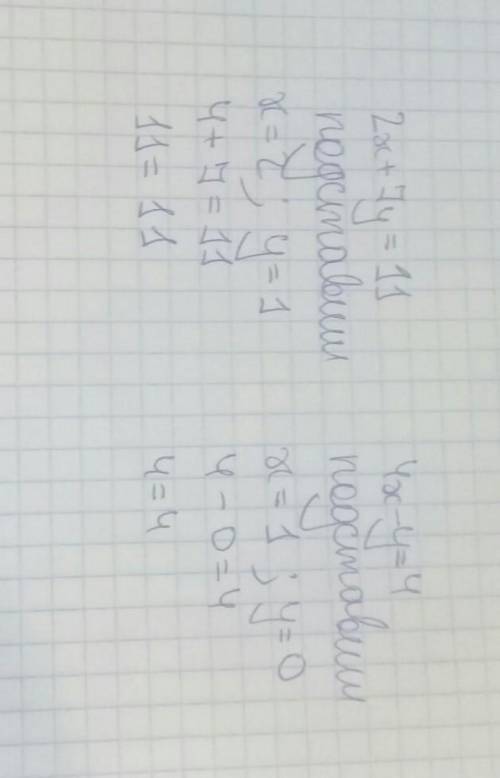 2x + 7y = 11
подставим
x = 2; y = 1
4 + 7 = 11
11 = 11
4x - y = 4
подставим
x = 1; y = 0
4 - 0 = 4
4 = 4